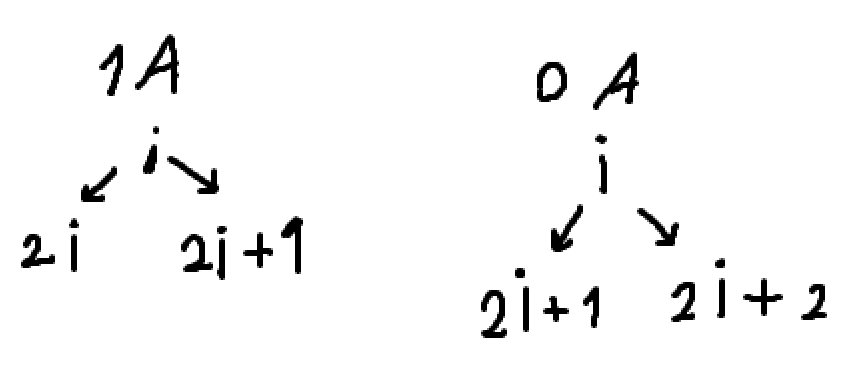 1A
i
2i 2i+1
0 A
i
2i+1 2i+2